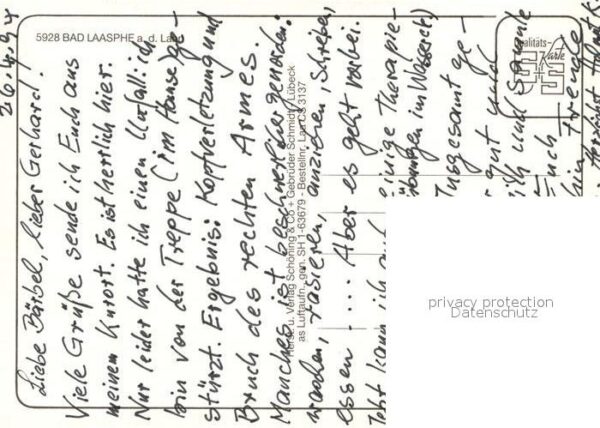 26.4.94
5928 BAD LAASPHE a. d. Lahn
Liebe Bärbel, lieber Gerhard!
Viele Grüße sende ich Euch aus
meinem Kurort. Es ist herrlich hier.
Nur leider hatte ich einen Unfall: ich
bin von der Treppe (im Hause) ge-
stürzt. Ergebnis: Kopfverletzung und
Bruch des rechten Armes.
Manches ist beschwerlicher geworden:
waschen, rasieren, anziehen, schreiben,
essen .... Aber es geht vorbei.
Jetzt kann ich auch
einige Therapie-
übungen im Wasser etc.)
Insgesamt ge-
gut und
ich und
Euch
Freude
Herst. u. Verlag Schöning & Co + Gebrüder Schmidt, Lübeck
as Luftaufn., gen. SH 1-63679 - Bestellnr. Laa CS 3137
Qualitäts-
Karte
privacy protection
Datenschutz